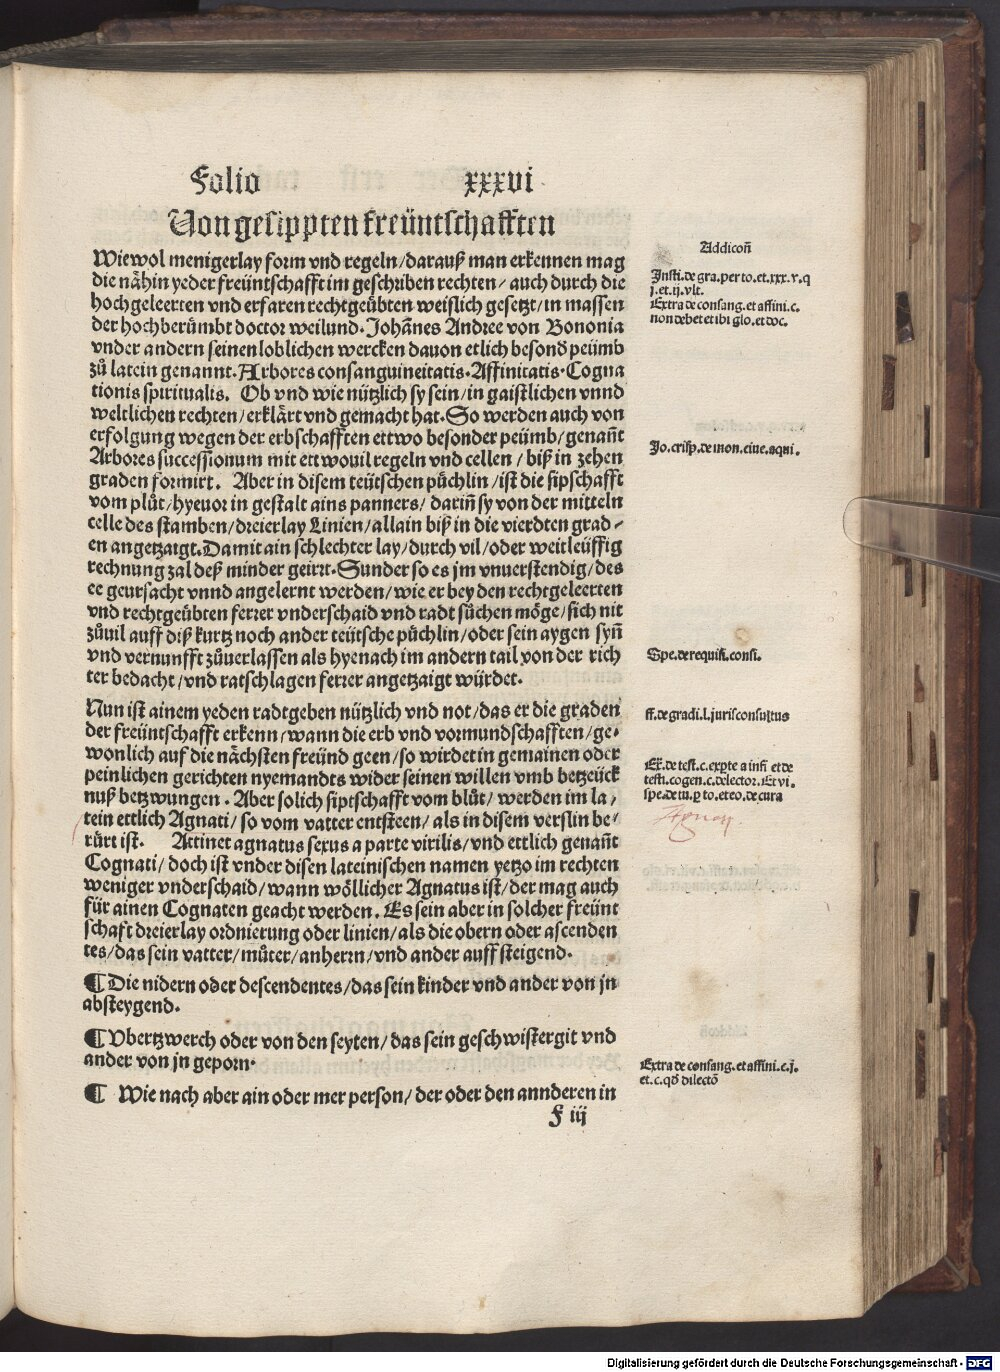 Folio xxxvi
Von gesippten freüntschafften
Wiewol menigerlay form vnd regeln/darauß man erkennen mag
die nähin yeder freüntschafft im geschriben rechten/auch durch die
hochgeleerten vnd erfaren rechtgeübten weislich gesetzt/in massen
der hochberümbt doctor weilund. Johānes Andree von Bononia
vnder andern seinen loblichen wercken dauon etlich besond peümb
zů latein genannt. Arbores consanguineitatis. Affinitatis. Cogna
tionis spiritualis. Ob vnd wie nützlich sy sein/in gaistlichen vnnd
weltlichen rechten/erklärt vnd gemacht hat. So werden auch von
erfolgung wegen der erbschafften ettwo besonder peümb/genañt
Arbores successionum mit ettwouil regeln vnd cellen/biß in zehen
graden formirt. Aber in disem teütschen püchlin/ist die sipschafft
vom plůt/hyeuor in gestalt ains panners/dariñ sy von der mitteln
celle des stamben/dreierlay Linien/allain biß in die vierdten grad-
en angetzaigt. Damit ain schlechter lay/durch vil/oder weitleüffig
rechnung zal deß minder geirrt. Sunder so es jm vnuerstendig/des
ee geursacht vnnd angelernt werden/wie er bey den rechtgeleerten
vnd rechtgeübten ferrer vnderschaid vnd radt sůchen möge/sich nit
zůuil auff diß kurtz noch ander teütsche püchlin/oder sein aygen syñ
vnd vernunfft zůuerlassen als hyenach im andern tail von der rich
ter bedacht/vnd ratschlagen ferrer angetzaigt würdet.
Nun ist ainem yeden radtgeben nützlich vnd not/das er die graden
der freüntschafft erkenn/wann die erb vnd vormundschafften/ge-
wonlich auf die nächsten freünd geen/so wirdet in gemainen oder
peinlichen gerichten nyemandts wider seinen willen vmb betzeück
nuß betzwungen. Aber solich siptschafft vom blůt/werden im la/
tein ettlich Agnati/so vom vatter entsteen/als in disem verslin be/
rürt ist. Attinet agnatus sexus a parte virilis/vnd ettlich genañt
Cognati/doch ist vnder disen lateinischen namen yetzo im rechten
weniger vnderschaid/wann wöllicher Agnatus ist/der mag auch
für ainen Cognaten geacht werden. Es sein aber in solcher freünt
schaft dreierlay ordnierung oder linien/als die obern oder ascenden
tes/das sein vatter/můter/anherrn/vnd ander auff steigend.
¶ Die nidern oder descendentes/das sein kinder vnd ander von jn
absteygend.
¶ Vbertzwerch oder von den seyten/das sein geschwistergit vnd
ander von jn geporn.
¶ Wie nach aber ain oder mer person/der oder den annderen in
F iij
Addicoñ
Insti. de gra. per to. et. xxx. v. q
j. et. ij. vlt.
Extra de consang. et affini. c.
non debet et ibi glo. et doc.
Jo. crisp. de mon. ciue. aqui.
Spe. de requisi. consi.
ff. de gradi. l. jurisconsultus
Ex. de test. c. expte a insi et de
testi. cogen. c. delector. Et vi.
spe. de tu. p to. et eo. de cura
Extra de consang. et affini. c. j.
et. c. qd dilectō
Digitalisierung gefördert durch die Deutsche Forschungsgemeinschaft - DFG